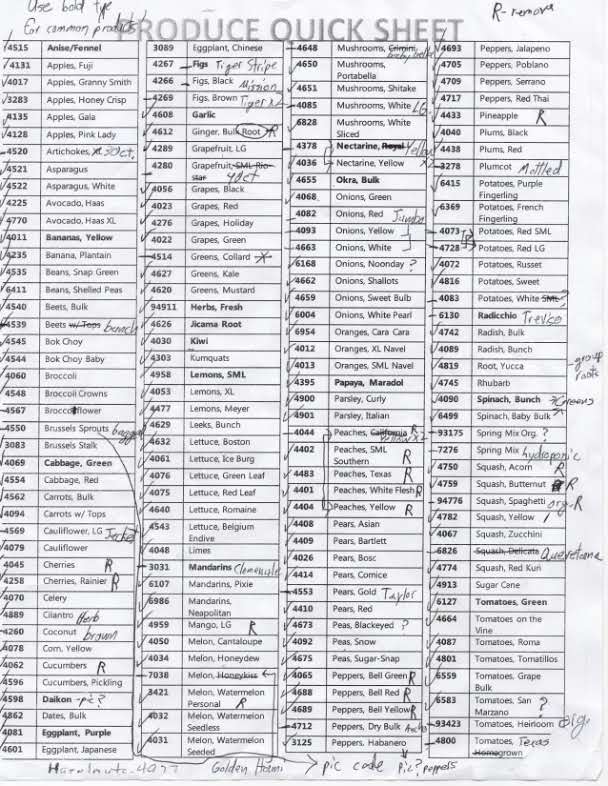 Use bold type
for common products
R-remove
PRODUCE QUICK SHEET
4515 Anise/Fennel
4131 Apples, Fuji
4017 Apples, Granny Smith
3283 Apples, Honey Crisp
4135 Apples, Gala
4128 Apples, Pink Lady
4520 Artichokes, XL 30ct.
4521 Asparagus
4522 Asparagus, White
4225 Avocado, Haas
4770 Avocado, Haas XL
4011 Bananas, Yellow
4235 Banana, Plantain
4535 Beans, Snap Green
6411 Beans, Shelled Peas
4540 Beets, Bulk
4539 Beets w/ Tops bunch
4545 Bok Choy
4544 Bok Choy Baby
4060 Broccoli
4548 Broccoli Crowns
4567 Broccoflower
4550 Brussels Sprouts bagged
3083 Brussels Stalk
4069 Cabbage, Green
4554 Cabbage, Red
4562 Carrots, Bulk
4094 Carrots w/ Tops
4569 Cauliflower, LG Jacket
4079 Cauliflower
4045 Cherries R
4258 Cherries, Rainier R
4070 Celery
4889 Cilantro Herb
4260 Coconut brown
4078 Corn, Yellow
4062 Cucumbers R
4596 Cucumbers, Pickling
4598 Daikon -pic?
4862 Dates, Bulk
4081 Eggplant, Purple
4601 Eggplant, Japanese
3089 Eggplant, Chinese
4267 Figs Tiger Stripe
4266 Figs, Black Mission
4269 Figs, Brown Tiger
4608 Garlic
4612 Ginger, Bulk Root R
4289 Grapefruit, LG
4280 Grapefruit, SML Rio-
star 40ct
4056 Grapes, Black
4023 Grapes, Red
4276 Grapes, Holiday
4022 Grapes, Green
4514 Greens, Collard
4627 Greens, Kale
4620 Greens, Mustard
94911 Herbs, Fresh
4626 Jicama Root
4030 Kiwi
4303 Kumquats
4958 Lemons, SML
4053 Lemons, XL
4477 Lemons, Meyer
4629 Leeks, Bunch
4632 Lettuce, Boston
4061 Lettuce, Ice Burg
4076 Lettuce, Green Leaf
4075 Lettuce, Red Leaf
4640 Lettuce, Romaine
4543 Lettuce, Belgium
Endive
4048 Limes
3031 Mandarins Clementile
6107 Mandarins, Pixie
6986 Mandarins,
Neapolitan
4959 Mango, LG R
4050 Melon, Cantaloupe
4034 Melon, Honeydew
7038 Melon, Honeykiss
3421 Melon, Watermelon
Personal R
4032 Melon, Watermelon
Seedless
4031 Melon, Watermelon
Seeded
4648 Mushrooms, Crimini baby bella
4650 Mushrooms,
Portabella
4651 Mushrooms, Shitake
4085 Mushrooms, White LG.
6828 Mushrooms, White
Sliced
4378 Nectarine, Royal Yellow
4036 Nectarine, Yellow
4655 Okra, Bulk
4068 Onions, Green
4082 Onions, Red Jumbo
4093 Onions, Yellow
4663 Onions, White
6168 Onions, Noonday ?
4662 Onions, Shallots
4659 Onions, Sweet Bulb
6004 Onions, White Pearl
6954 Oranges, Cara Cara
4012 Oranges, XL Navel
4013 Oranges, SML Navel
4395 Papaya, Maradol
4900 Parsley, Curly
4901 Parsley, Italian
4044 Peaches, California R
4402 Peaches, SML
Southern R
4483 Peaches, Texas R
4401 Peaches, White Flesh R
4404 Peaches, Yellow R
4408 Pears, Asian
4409 Pears, Bartlett
4026 Pears, Bosc
4414 Pears, Comice
4553 Pears, Gold Taylor
4410 Pears, Red
4673 Peas, Blackeyed ?
4092 Peas, Snow
4675 Peas, Sugar-Snap
4065 Peppers, Bell Green R
4688 Peppers, Bell Red R
4689 Peppers, Bell Yellow R
4712 Peppers, Dry Bulk
3125 Peppers, Habanero
4693 Peppers, Jalapeno
4705 Peppers, Poblano
4709 Peppers, Serrano
4717 Peppers, Red Thai
4433 Pineapple R
4040 Plums, Black
4438 Plums, Red
3278 Plumcot Mottled
6415 Potatoes, Purple
Fingerling
6369 Potatoes, French
Fingerling
4073 Potatoes, Red SML
4728 Potatoes, Red LG
4072 Potatoes, Russet
4816 Potatoes, Sweet
4083 Potatoes, White SML ?
6130 Radicchio Treviso
4742 Radish, Bulk
4089 Radish, Bunch
4819 Root, Yucca -group roots
4745 Rhubarb
4090 Spinach, Bunch Greens
6499 Spinach, Baby Bulk
93175 Spring Mix Org. ?
7276 Spring Mix hydroponic
4750 Squash, Acorn R
4759 Squash, Butternut R
94776 Squash, Spaghetti org-R
4782 Squash, Yellow
4067 Squash, Zucchini
6826 Squash, Delicata Queretana
4774 Squash, Red Kuri
4913 Sugar Cane
6127 Tomatoes, Green
4664 Tomatoes on the
Vine
4087 Tomatoes, Roma
4801 Tomatoes, Tomatillos
6559 Tomatoes, Grape
Bulk
6583 Tomatoes, San ?
Marzano
93423 Tomatoes, Heirloom Org.
4800 Tomatoes, Texas
Homegrown
Hazelnuts-4977 Golden Hami > pic code pic? peppers